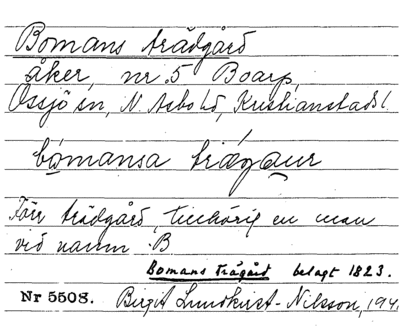 Bomans trädgård
åker, nr. 5 Boarp,
Össjö sn, N. Åsbo hd, Kristianstads l.
bómansa trǽgaur
Förr trädgård, tillhörig en man
vid namn B
Bomans trägård belagt 1823.
Nr 5508. Birgit Lundkvist-Nilsson, 194